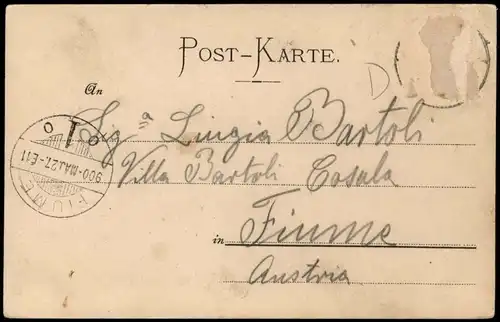 POST-KARTE.
D
An
Sigª Luigia Bartoli
Villa Bartoli Cosala
in Fiume
Austria
FIUME
900-MAJ.27.-E.11